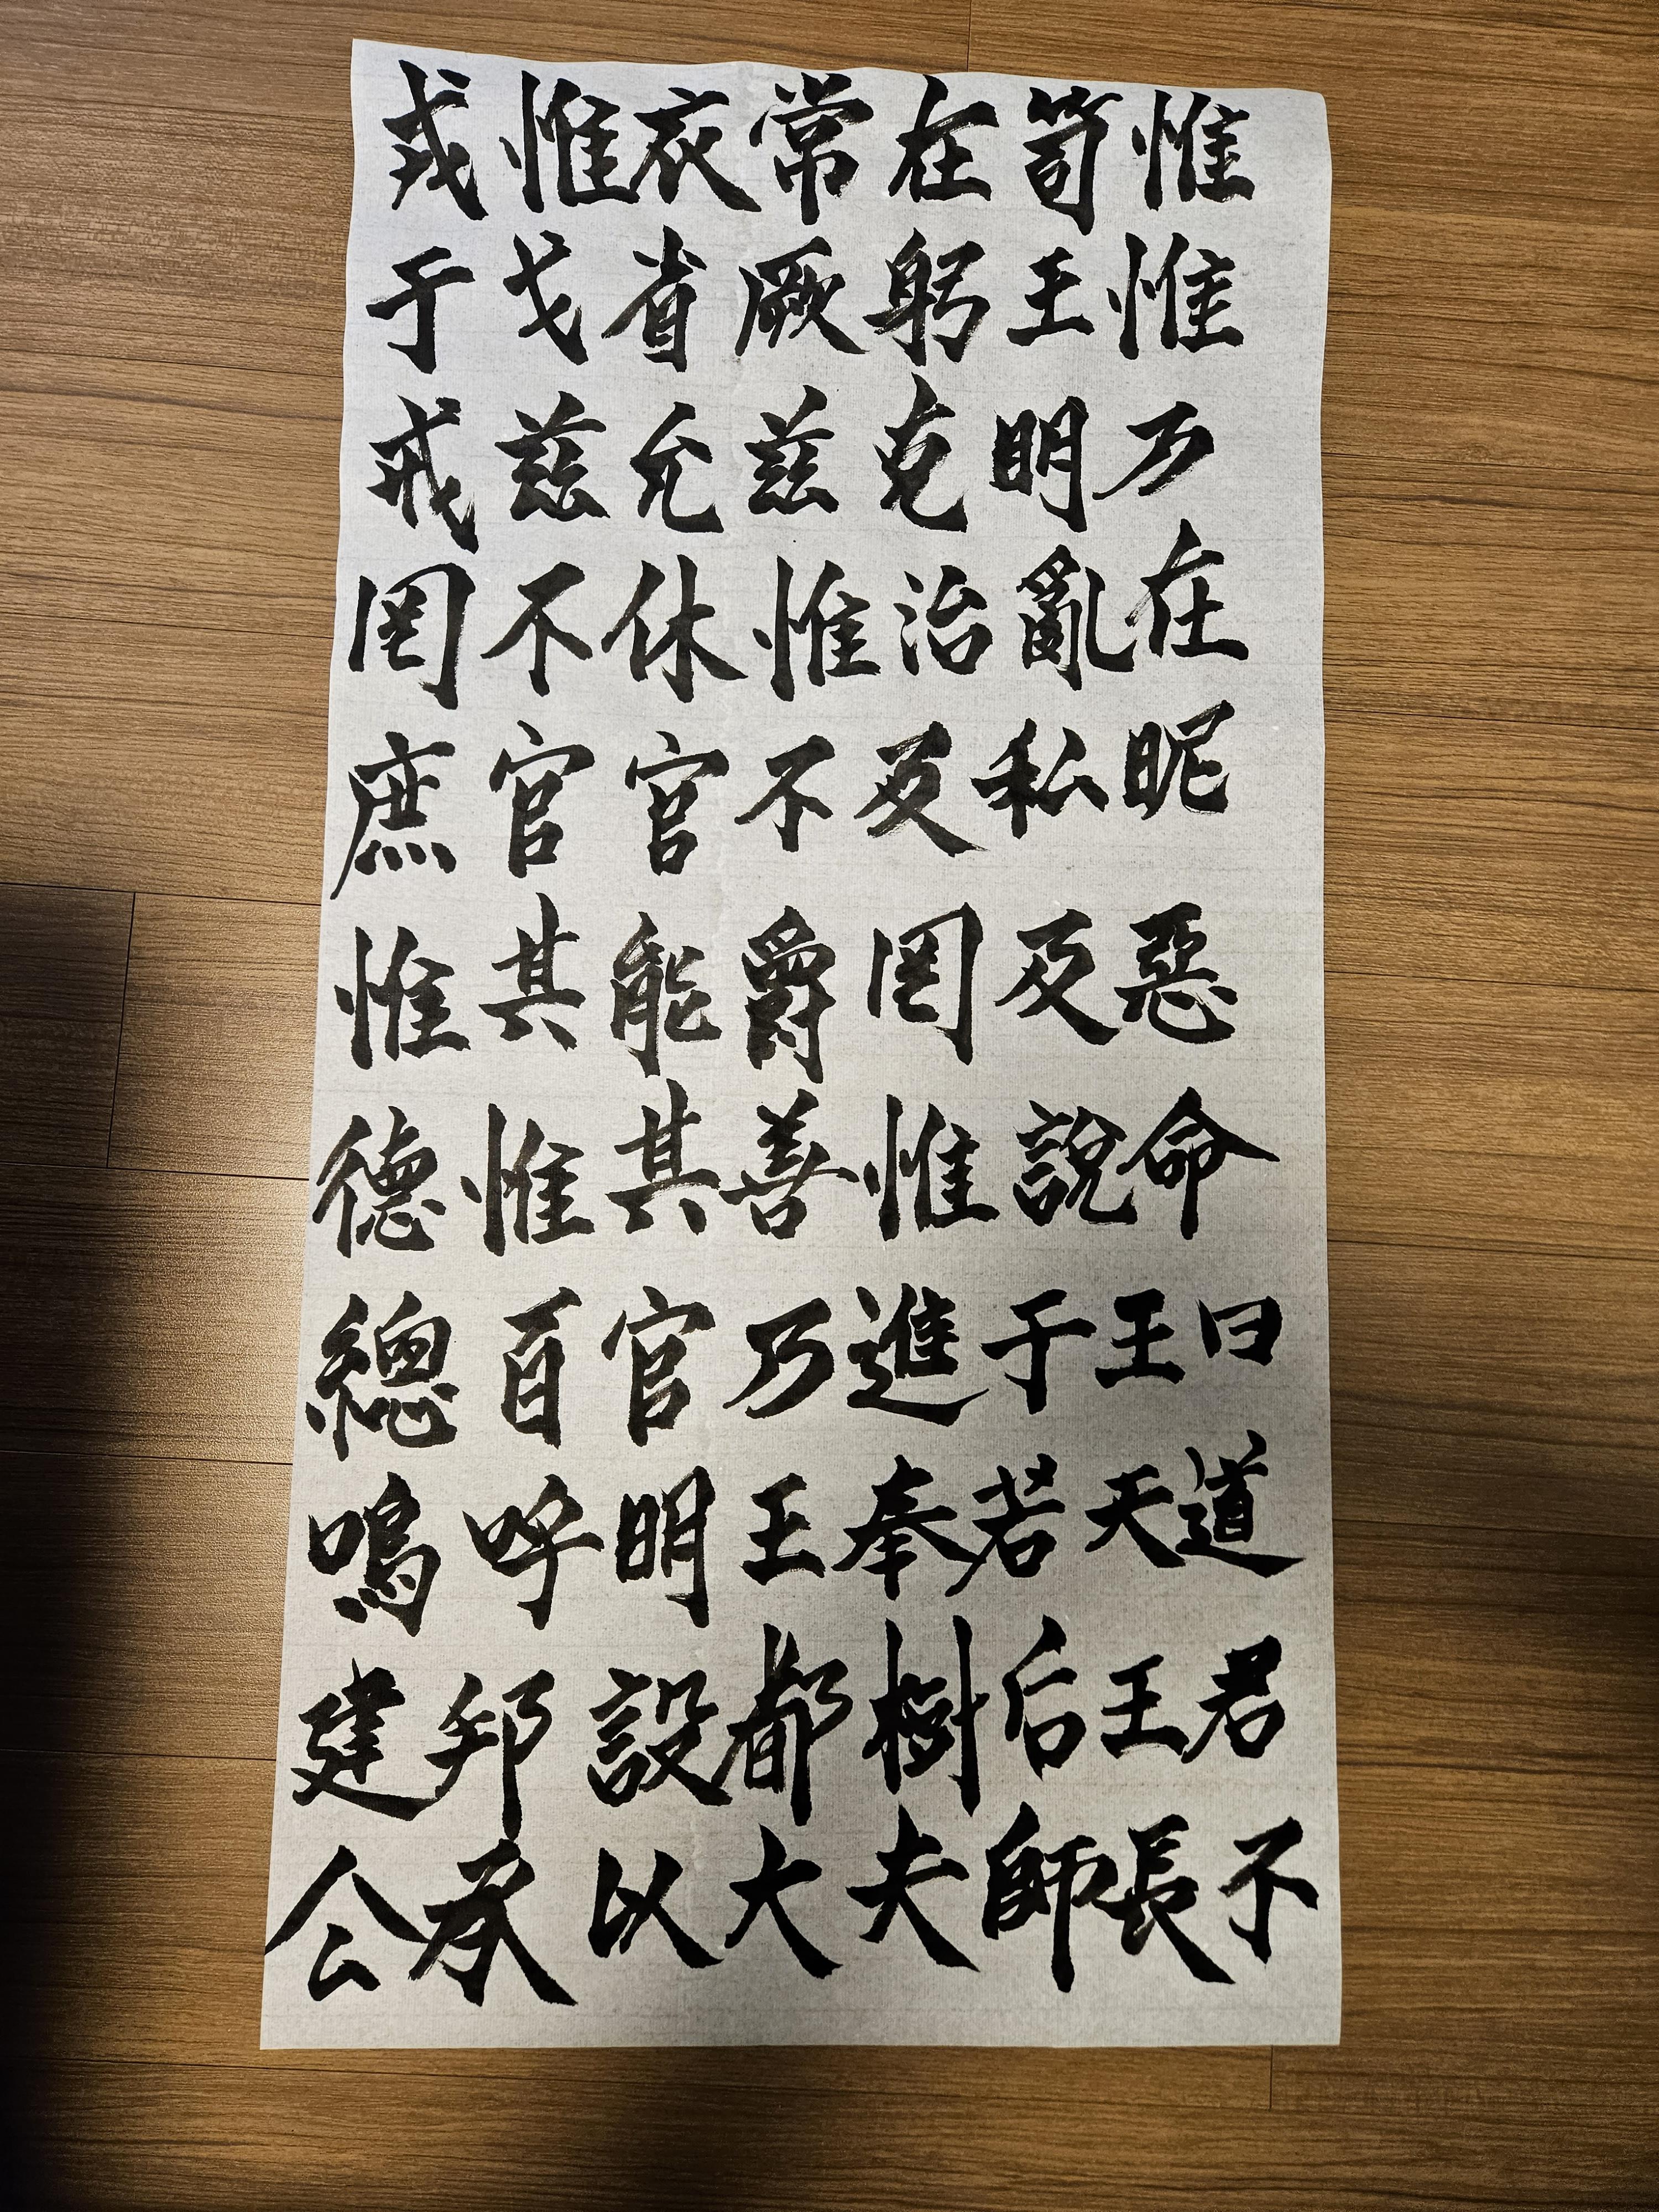 戎惟衣常在笥惟
于戈省厥躬王惟
戒茲允茲克明乃
罔不休惟治亂在
庶官官不及私昵
惟其能爵罔及惡
德惟其善惟說命
總百官乃進于王曰
嗚呼明王奉若天道
建邦設都樹后王君
公承以大夫師長不